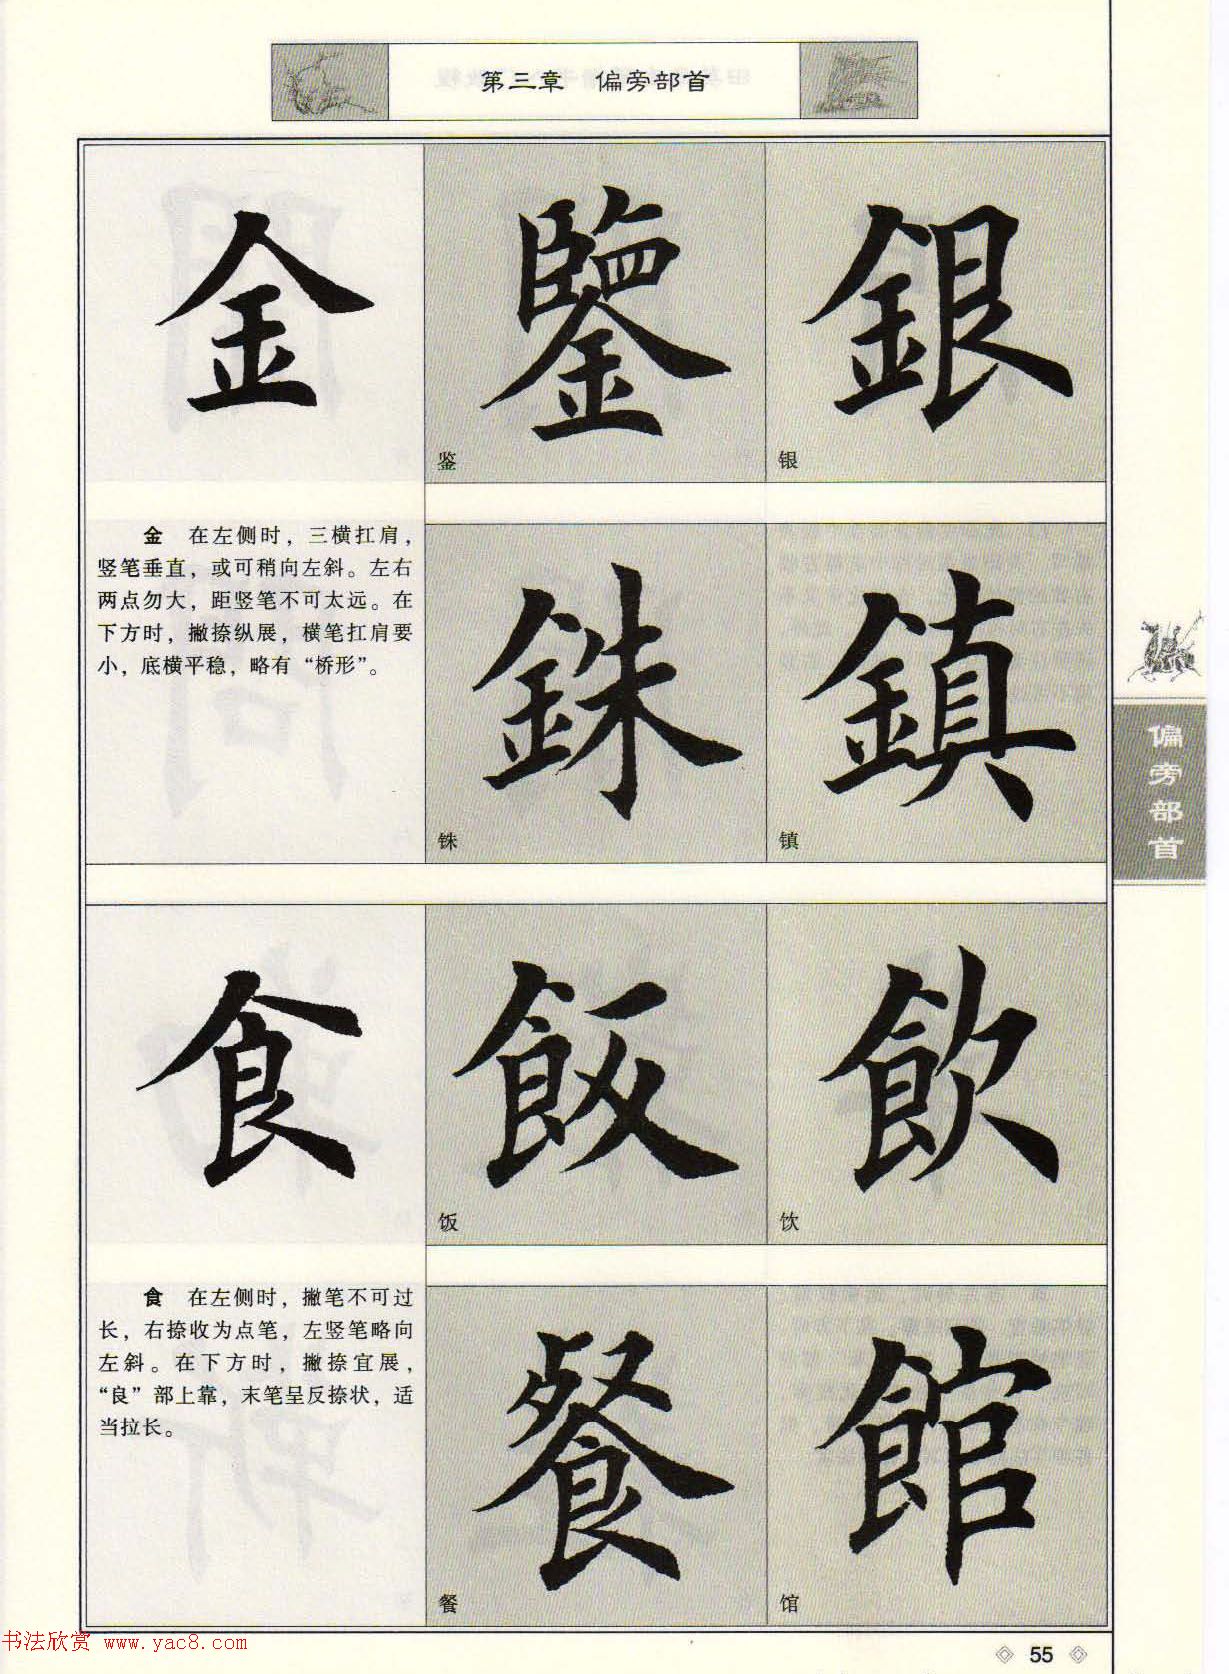 第三章 偏旁部首
金
鑒
銀
鉴
银
金 在左侧时，三横扛肩，
竖笔垂直，或可稍向左斜。左右
两点勿大，距竖笔不可太远。在
下方时，撇捺纵展，横笔扛肩要
小，底横平稳，略有“桥形”。
銖
鎮
铢
镇
偏旁部首
食
飯
飲
饭
饮
食 在左侧时，撇笔不可过
长，右捺收为点笔，左竖笔略向
左斜。在下方时，撇捺宜展，
“良”部上靠，末笔呈反捺状，适
当拉长。
餐
館
餐
馆
书法欣赏 www.yac8.com
55